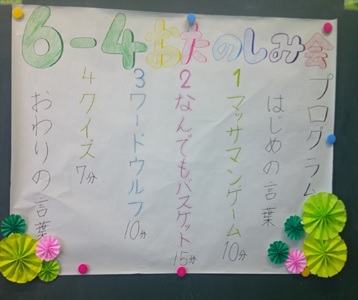 6-4おたのしみ会
プログラム
はじめの言葉
1マッサマンゲーム10分
2なんでもバスケット15分
3ワードウルフ10分
4クイズ7分
おわりの言葉